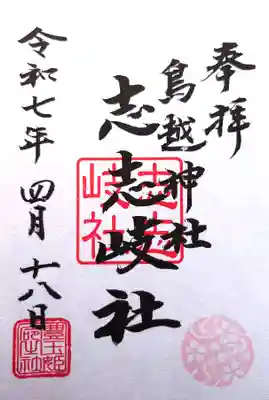 奉拝
鳥越神社
志志岐社
令和七年 四月 十八日
志志
岐社
豊玉姫